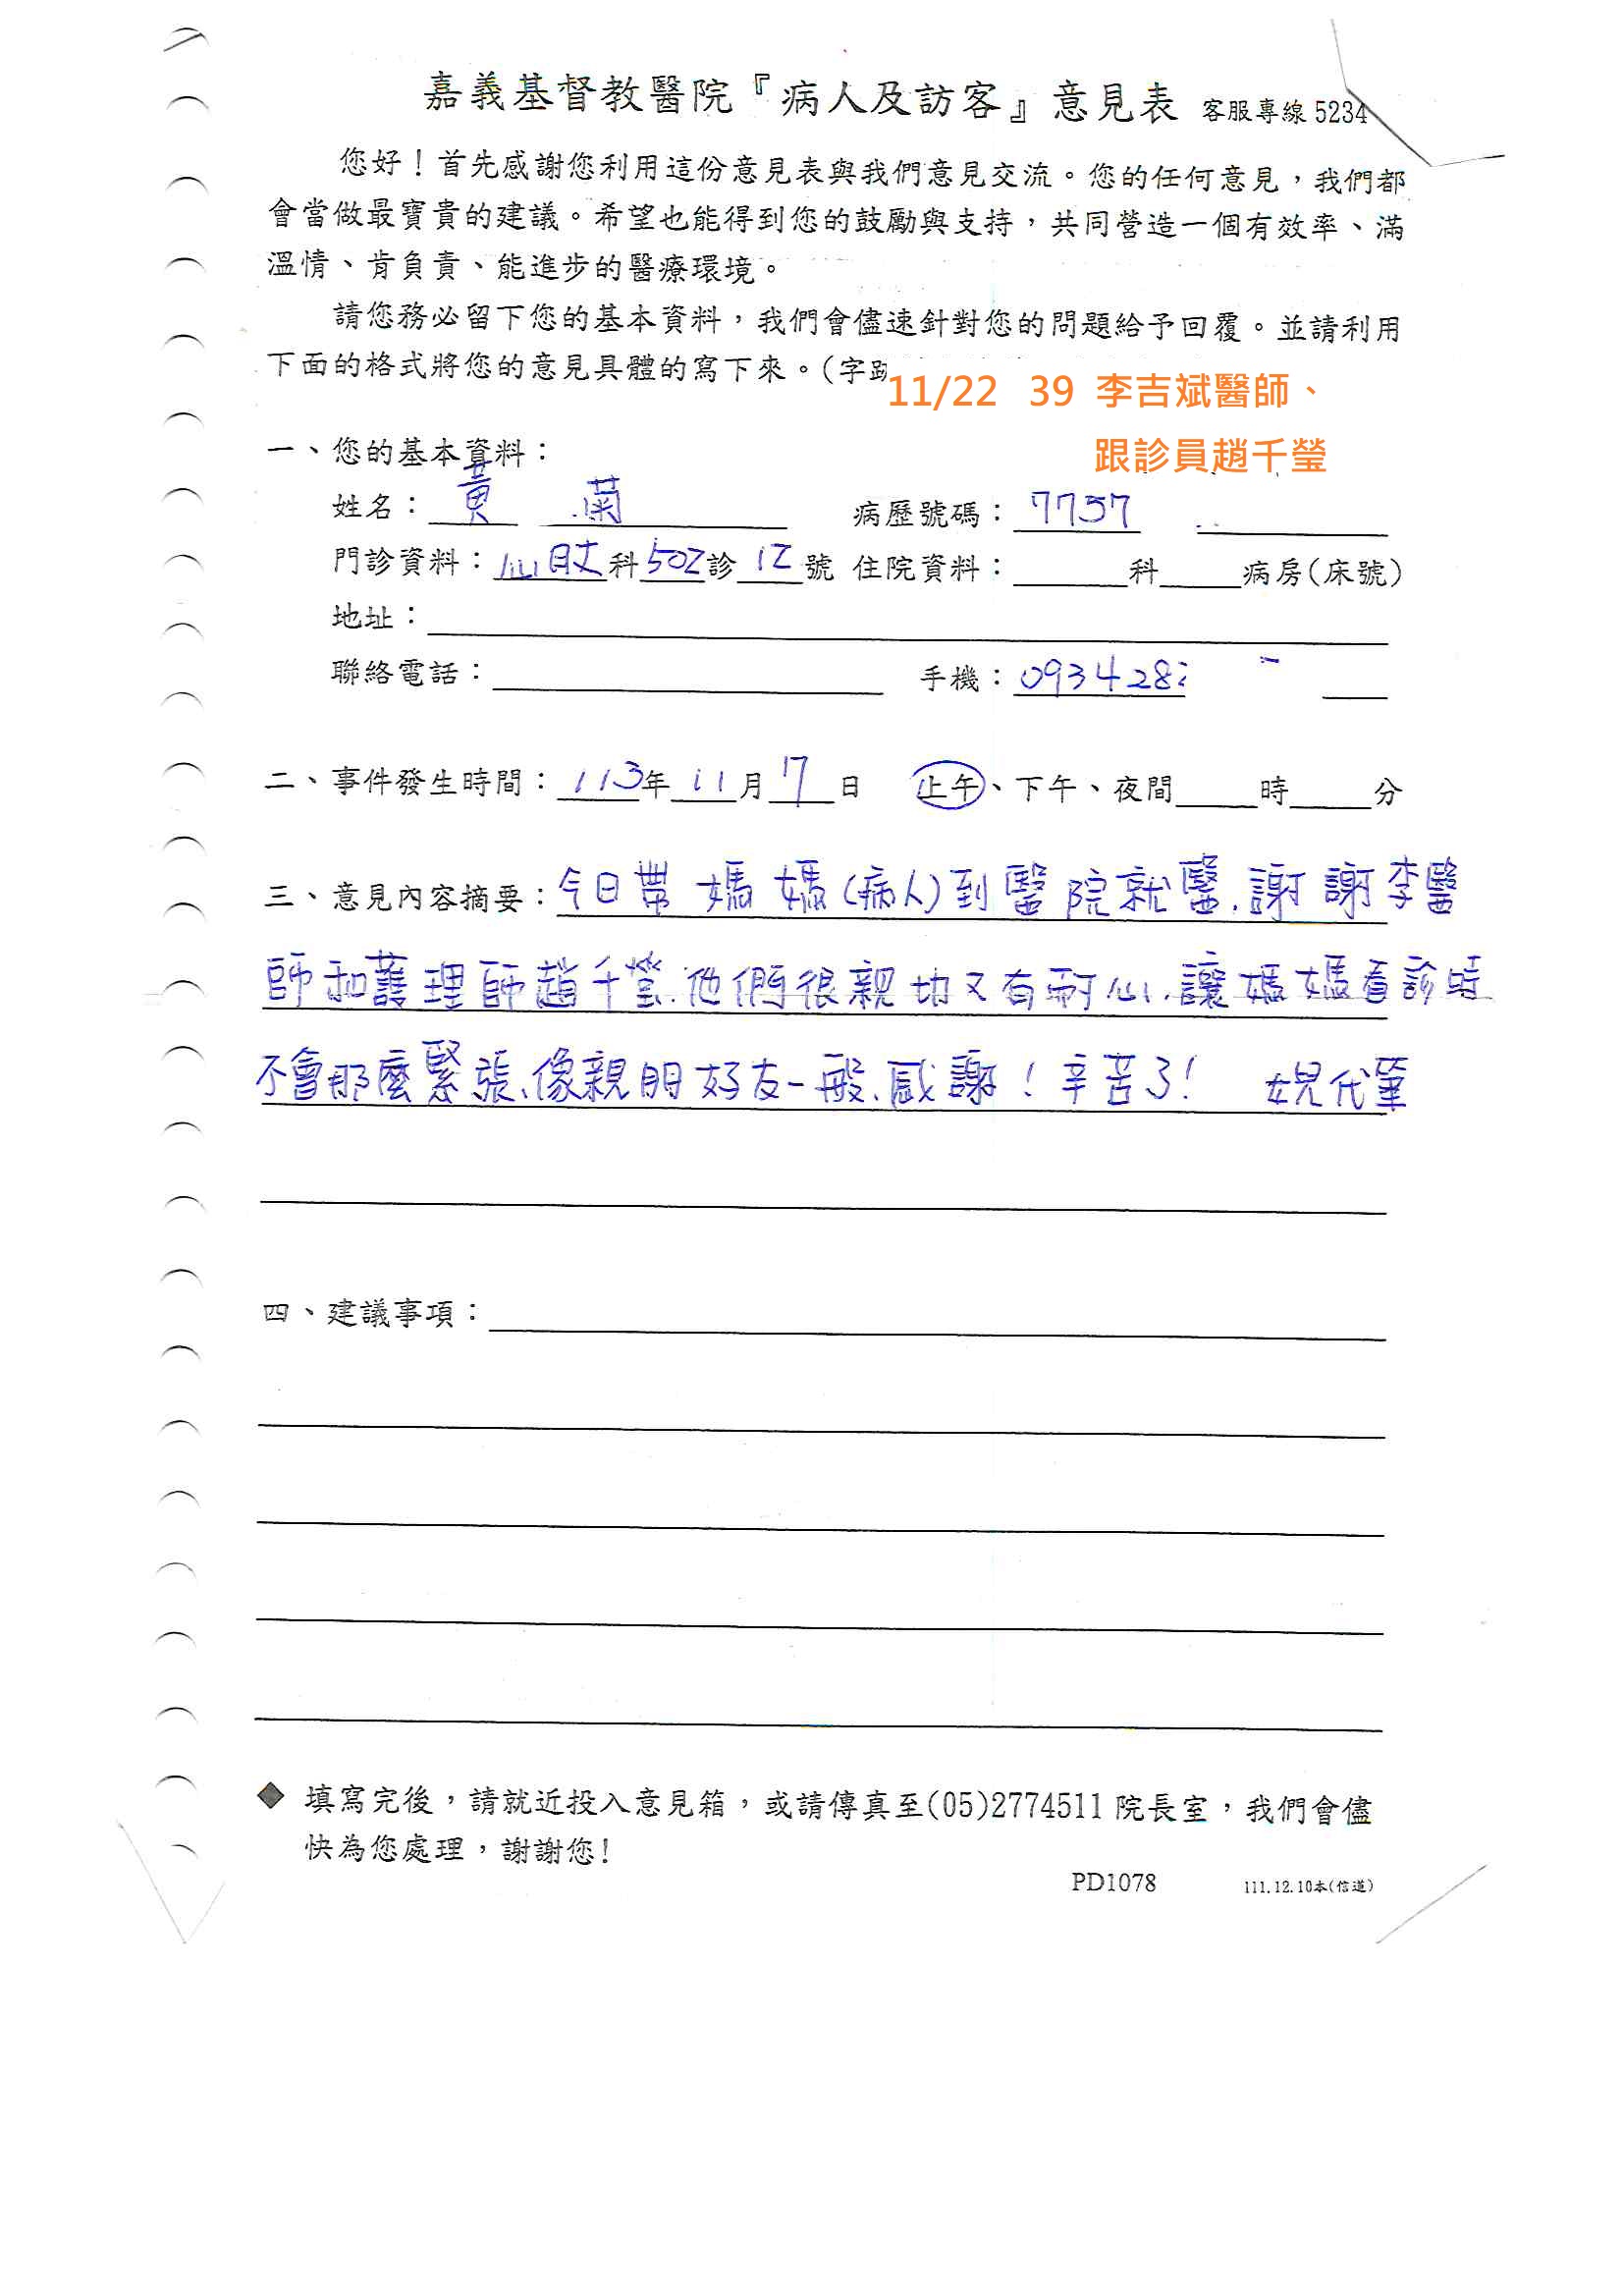 嘉義基督教醫院『病人及訪客』意見表 客服專線 5234
您好！首先感謝您利用這份意見表與我們意見交流。您的任何意見，我們都
會當做最寶貴的建議。希望也能得到您的鼓勵與支持，共同營造一個有效率、滿
溫情、肯負責、能進步的醫療環境。
請您務必留下您的基本資料，我們會儘速針對您的問題給予回覆。並請利用
下面的格式將您的意見具體的寫下來。(字跡
11/22 39 李吉斌醫師、
跟診員趙千瑩
一、您的基本資料：
姓名：黃 蘭 病歷號碼：7757
門診資料：心臟科502診12號 住院資料：科 病房(床號)
地址：
聯絡電話： 手機：093428
二、事件發生時間：113年11月7日 上午、下午、夜間 時 分
三、意見內容摘要：今日帶媽媽(病人)到醫院就醫.謝謝李醫
師和護理師趙千瑩.他們很親切又有耐心.讓媽媽看診時
不會那麼緊張、像親朋好友一般、感謝！辛苦了！ 女兒代筆
四、建議事項：
◆ 填寫完後，請就近投入意見箱，或請傳真至(05)2774511 院長室，我們會儘
快為您處理，謝謝您!
PD1078 111.12.10本(信道)